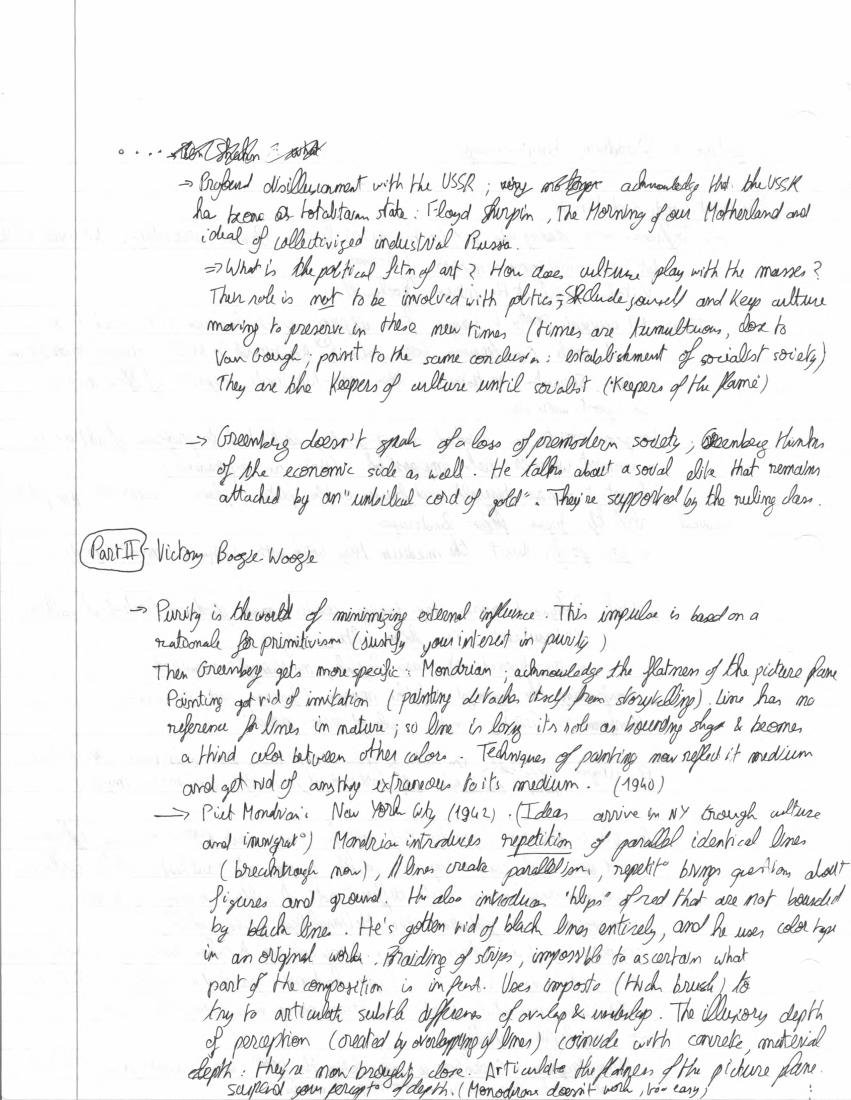 → Profound disillusionment with the USSR ; acknowledge that the USSR
has become a totalitarian state : Floyd , The Morning of our Motherland and
ideal of collectivized industrial Russia.
⇒ What is the political fctn of art ? How does culture play with the masses ?
Their role is not to be involved with politics ; Seclude yourself and keep culture
moving to preserve in these new times (times are tumultuous, close to
Van Gough ; point to the same conclusion : establishment of socialist society)
They are the keepers of culture until socialist ("Keepers of the flame)
→ Greenberg doesn't speak of a loss of premodern society ; Greenberg thinks
of the economic side as well . He talks about a social elite that remains
attached by an "umbilical cord of gold". They're supported by the ruling class .
Part II - Victory Boogie-Woogie
→ Purity is the world of minimizing external influence . This impulse is based on a
rationale for primitivism (justify your interest in purity)
Then Greenberg gets more specific : Mondrian ; acknowledge the flatness of the picture plane
Painting got rid of imitation (painting detaches itself from storytelling) . Line has no
reference for lines in nature ; so line is losing its role as bounding shape & becomes
a third color between other colors . Techniques of painting now reflect it medium
and get rid of anything extraneous to its medium . (1940)
→ Piet Mondrian : New York City (1942) . (Ideas arrive in NY trough culture
and immigrat°) Mondrian introduces repetition of parallel identical lines
(breakthrough now) , // lines create parallelism , repetit° brings question about
figures and ground . He also introduces "blips" of red that are not bounded
by black lines . He's gotten rid of black lines entirely , and he uses color tape
in an original work . Braiding of strips , impossible to ascertain what
part of the composition is in front . Uses impasto (thick brush) to
try to articulate subtle differences of overlap & underlap . The illusory depth
of perception (created by overlapping of lines) coincide with concrete, material
depth : they're now brought close . Articulate the flatness of the picture plane .
suspend your percept° of depth . (Monochrome doesn't work , too easy)